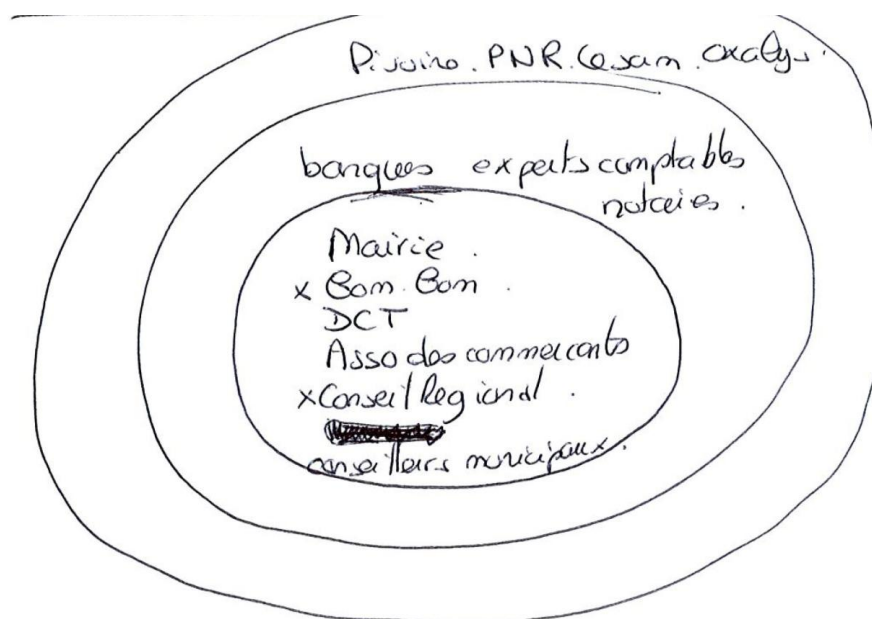 PNR. Cesam. oxalys.
banques experts comptables
notaires.
Mairie.
x Com. Com.
DCT
Asso des commercants
x Conseil Regional.
conseillers municipaux.